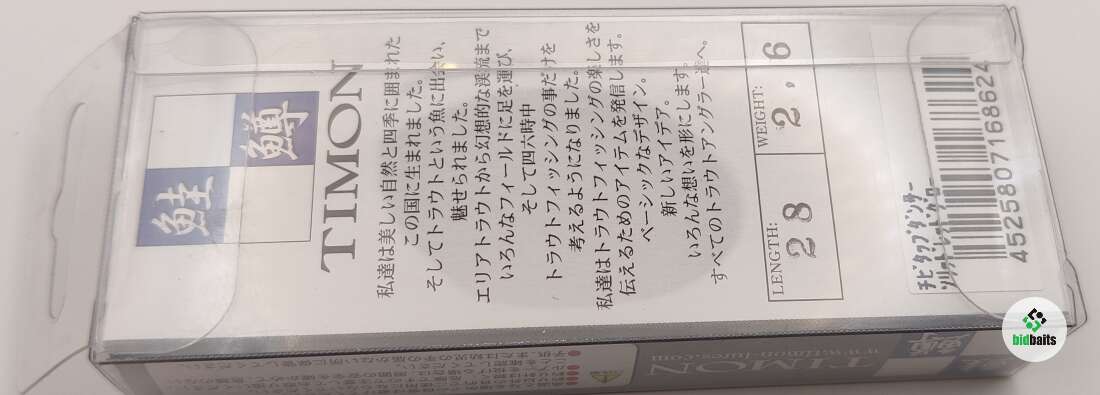 鮭
鱒
TIMON
私達は美しい自然と四季に囲まれた
この国に生まれました。
そしてトラウトという魚に出会い、
魅せられました。
エリアトラウトから幻想的な渓流まで
いろんなフィールドに足を運び、
そして四六時中
トラウトフィッシングの事だけを
考えるようになりました。
私達はトラウトフィッシングの楽しさを
伝えるためのアイテムを発信します。
ベーシックなデザイン。
新しいアイデア。
いろんな想いを形にします。
すべてのトラウトアングラー達へ。
LENGTH: WEIGHT:
28 2,6
チビタップダンサー
4525807168624
TIMON
www.timon-lures.com
bidbaits